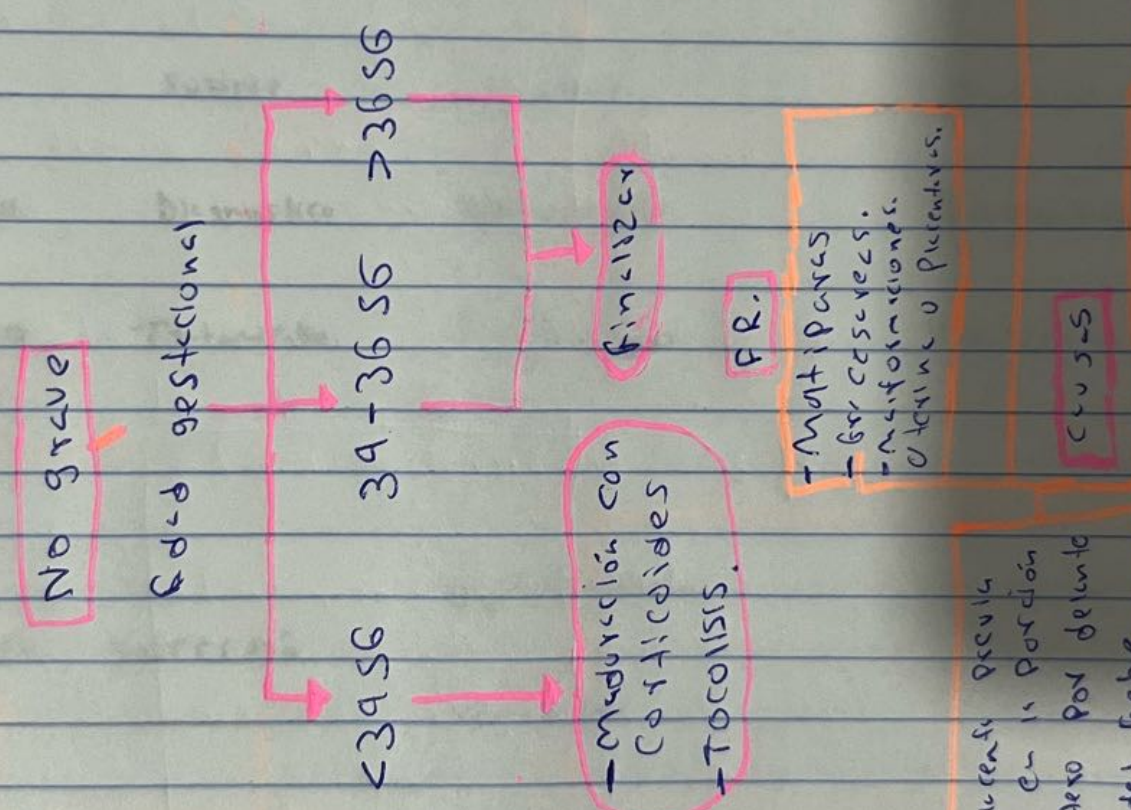 No grave
Edad gestacional
<34 SG
34-36 SG
>36 SG
- Maduración con
Corticoides
- Tocolisis.
finalizar
FR.
- Multiparas
- cesarea.
- malformaciones.
uterina o placentaria.
Causas
previa
en la porción
por delante